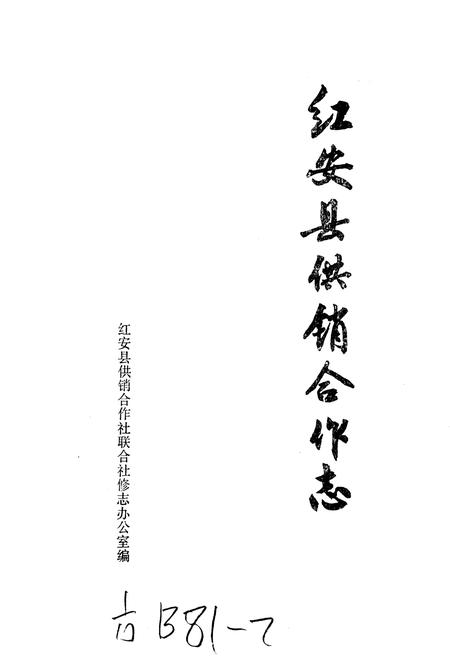 红安县供销合作志
红安县供销合作社联合社修志办公室编
B81-7